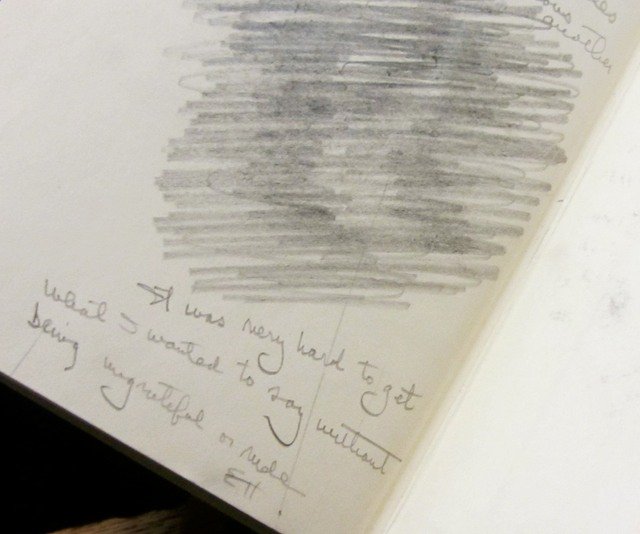 another
It was very hard to get
what I wanted to say without
being ungrateful or rude
EH